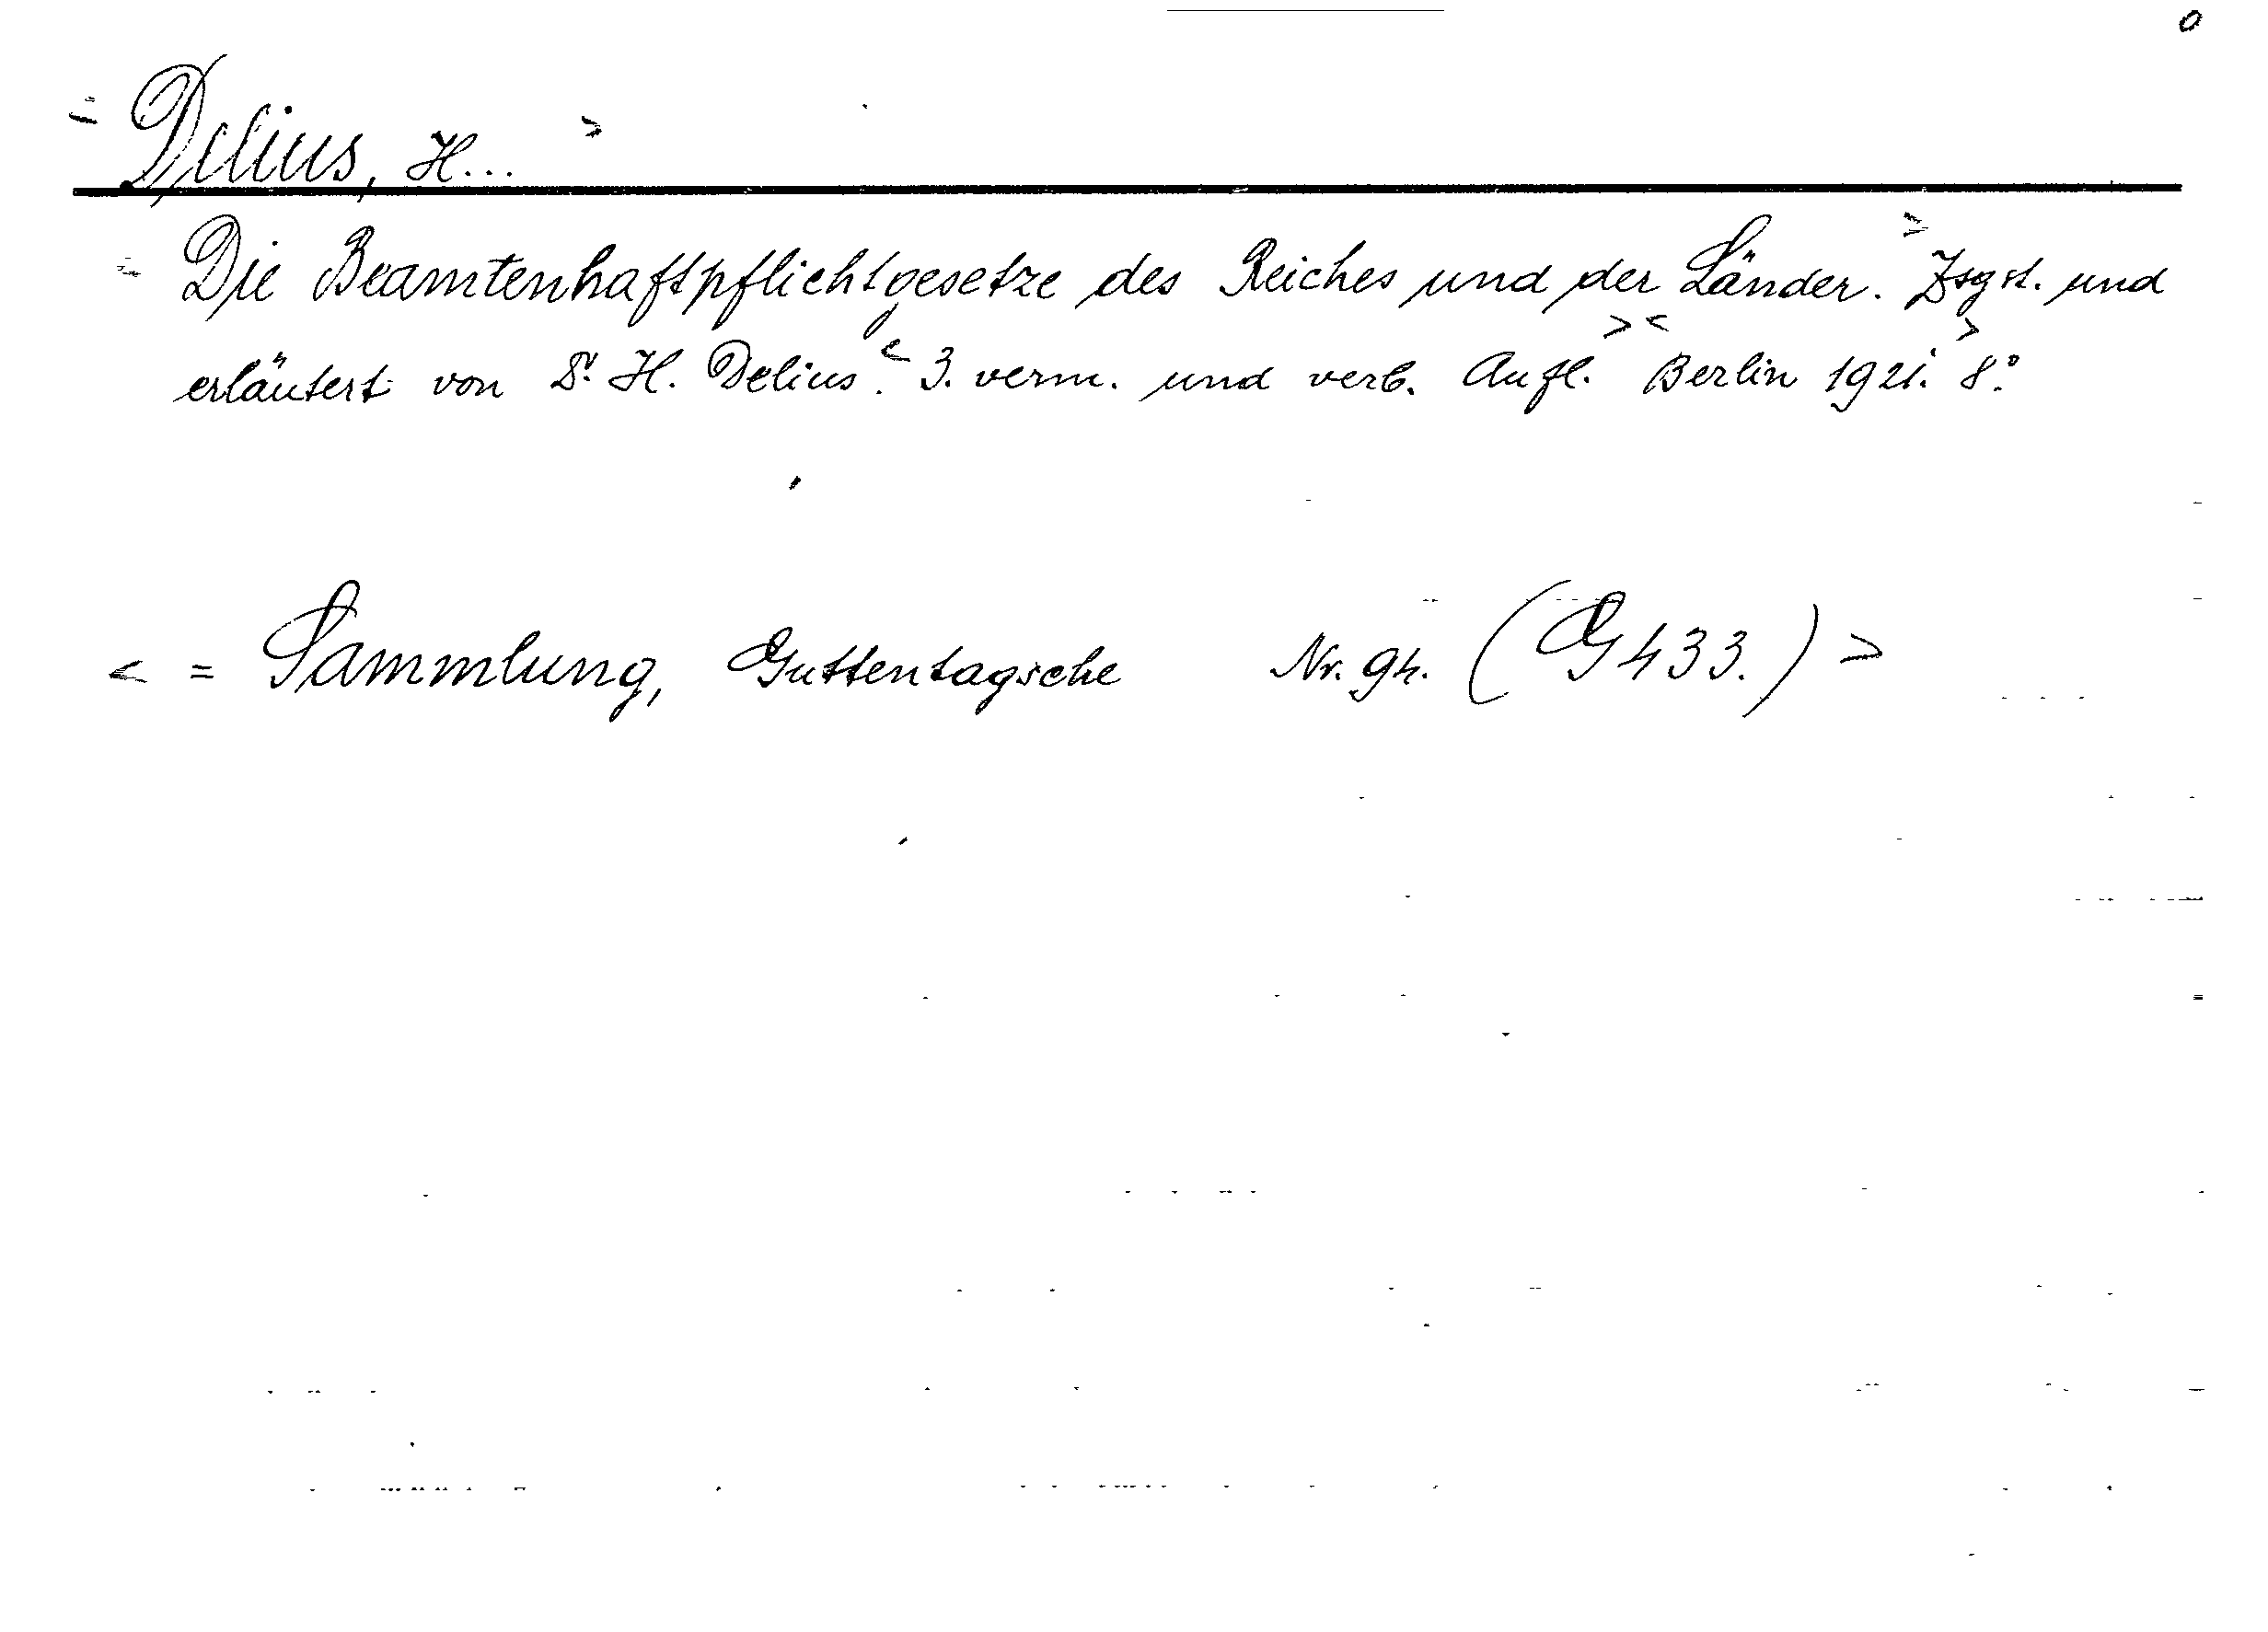 Delius, H...
Die Beamtenhaftpflichtgesetze des Reiches und der Länder. Zsgst. und
erläutert von Dr. H. Delius. 3. verm. und verb. Aufl. Berlin 1921. 8°.
< = Sammlung, Guttentagsche Nr. 94. (G 433.) >